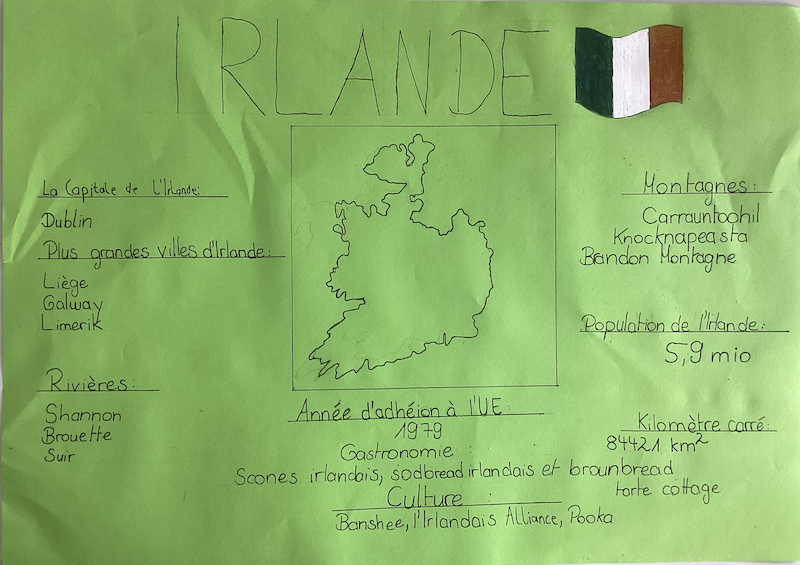 IRLANDE
La Capitale de l'Irlande:
Dublin
Plus grandes villes d'Irlande:
Liège
Galway
Limerik
Rivières:
Shannon
Brouette
Suir
Année d'adhéion à l'UE:
1979
Gastronomie :
Scones irlandais, sodbread irlandais et braunbread
tarte cottage
Culture :
Banshee, l'Irlandais Alliance, Pooka
Montagnes:
Carrauntoohil
Knocknapeasta
Brandon Montagne
Population de l'Irlande:
5,9 mio
Kilomètre carré:
84421 km²